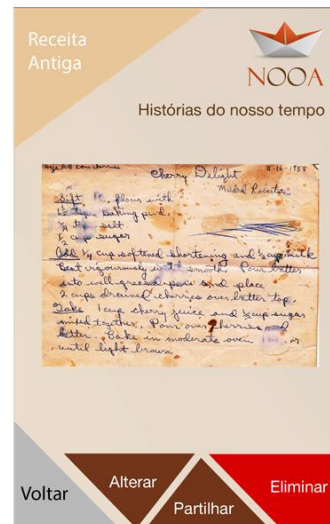 Receita
Antiga
NOOA
Histórias do nosso tempo
Cherry Delight
8-16-1958
Sift flour with
baking powd.
salt
cup sugar
Add ¼ cup softened shortening and milk
Beat vigorously smooth. Pour batter
into well greased pan and place
2 cups drained cherries over batter top.
Take 1 cup cherry juice and cup sugar
mixed together. Pour over cherries and
batter. Bake in moderate oven
until light brown
Voltar
Alterar
Partilhar
Eliminar